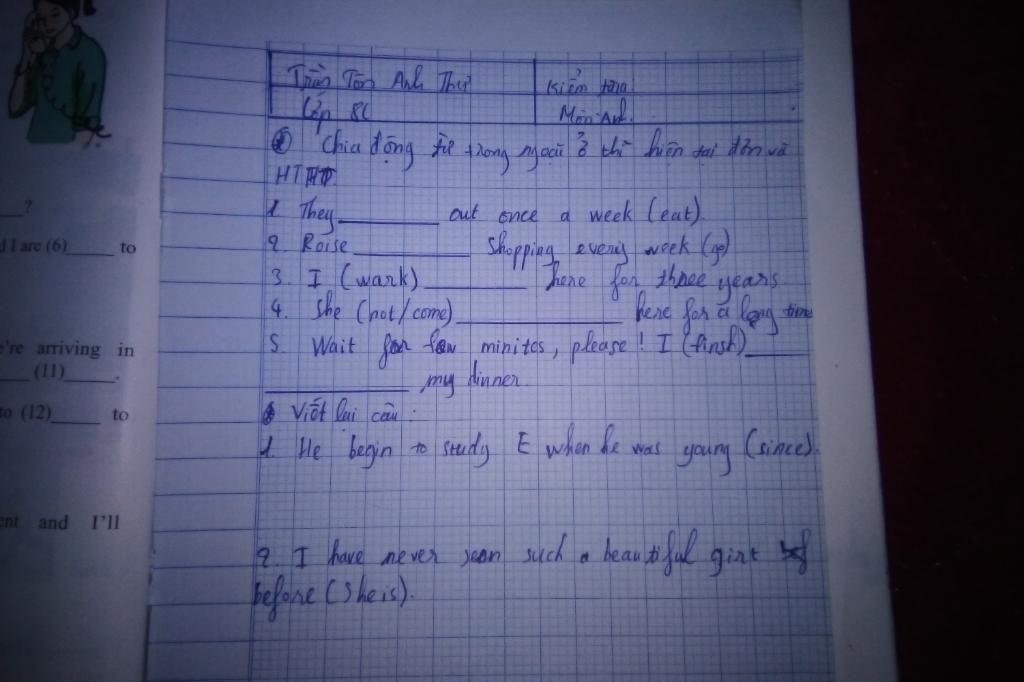 Trần Tôn Anh Thư
Kiểm tra
Lớp 8C
Môn: Anh.
Chia động từ trong ngoặc ở thì hiện tại đơn và
HTHT
1. They ________ out once a week (eat).
2. Roise ________ shopping every week (go)
3. I (wark) ________ here for three years
4. She (not/come) ________ here for a long time
5. Wait for few minites, please! I (finsh) ____
________ my dinner.
Viết lại câu:
1. He begin to study E when he was young (since).
2. I have never seen such a beautiful girt
before (She is).
___?
d I are (6)____ to
e're arriving in
___ (11)____.
to (12)____ to
ent and I'll